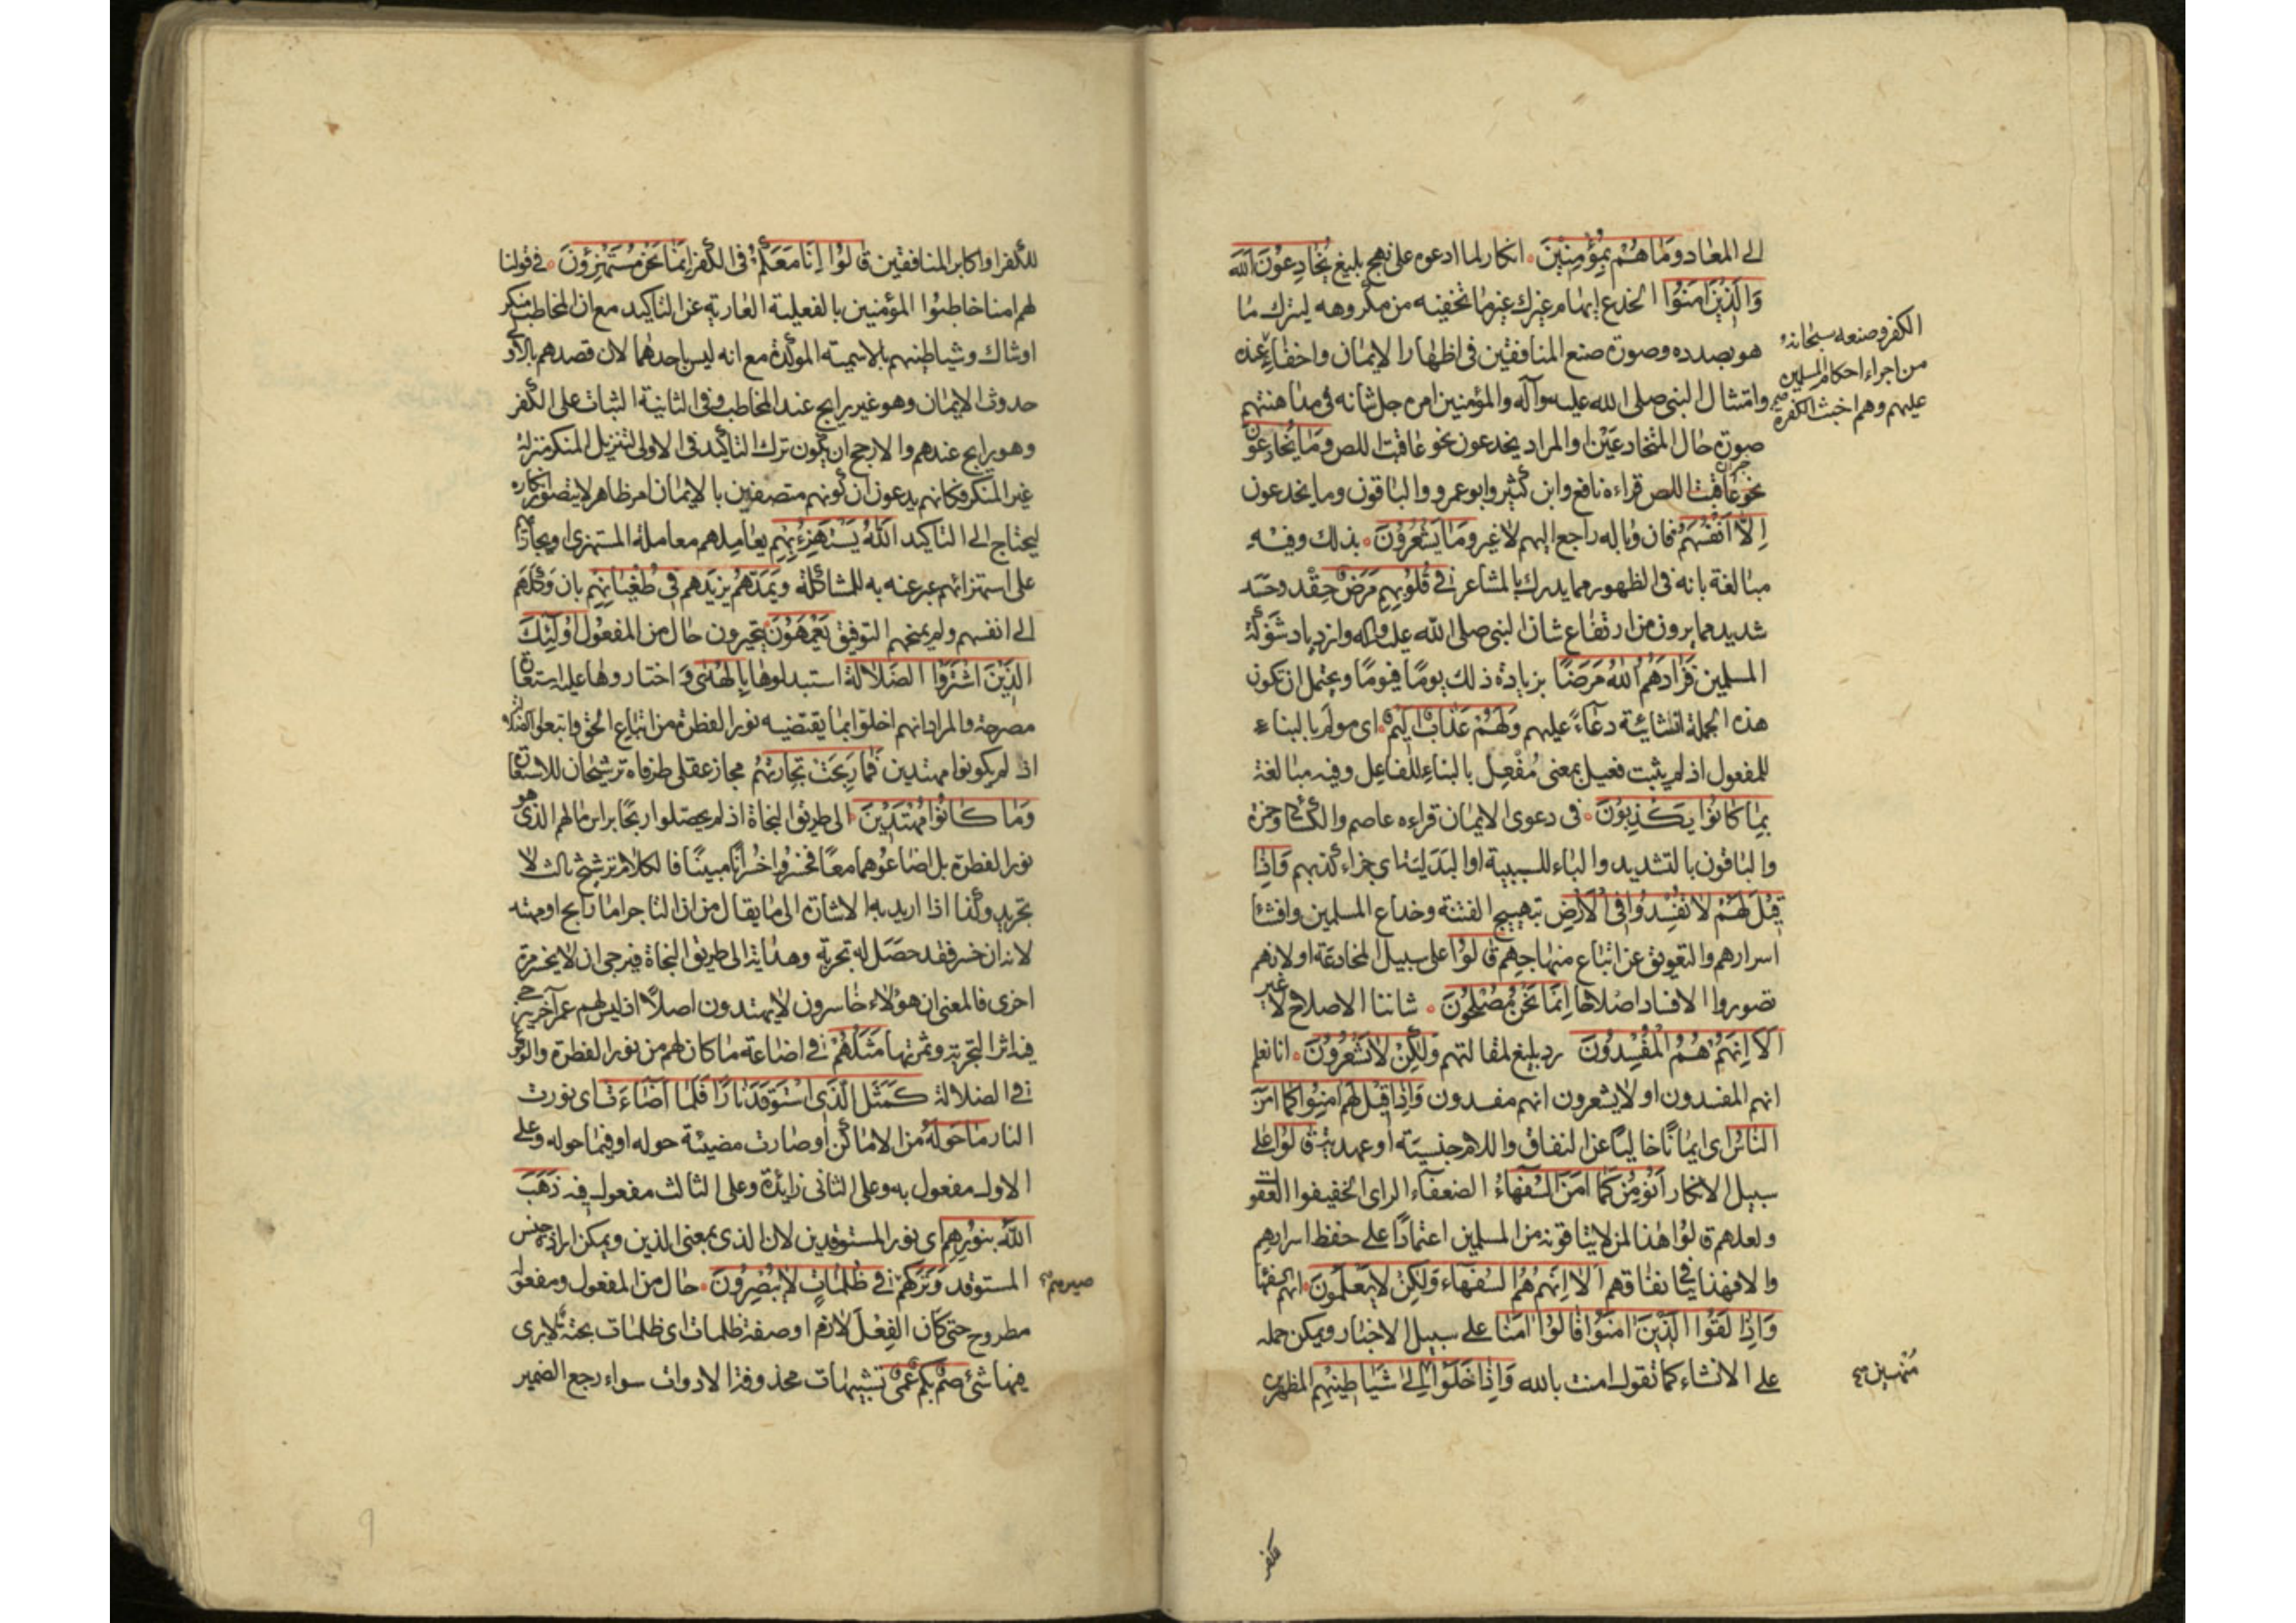 الى المعاد وما هم بمؤمنين انكار لما ادعوه على نهج بليغ يخادعون الله
والذين امنوا الخدع ايهام غيرك غير ما تخفيه من مكروهه ليترك ما
هو بصدده وصورة صنع المنافقين في اظهار الايمان واخفاء
الكفر وصنعه سبحانه
من اجراء احكام المسلمين
عليهم وهم اخبث الكفرة
وامتثال النبي صلى الله عليه وآله والمؤمنين امره جل شانه في مداهنتهم
صورة حال المتخادعين والمراد يخدعون نحو عاقبت اللص وما يخادعون
نحو عاقبت اللص قراءة نافع وابن كثير وابو عمرو والباقون وما يخدعون
الا انفسهم فان وباله راجع اليهم لا غير وما يشعرون بذلك وفيه
مبالغة بانه في الظهور مما يدرك بالمشاعر في قلوبهم مرض حقد وحسد
شديد مما يرون من ارتفاع شان النبي صلى الله عليه وآله وازدياد شوكة
المسلمين فزادهم الله مرضا بزيادة ذلك يوما فيوما ويحتمل ان تكون
هذه الجملة انشائية دعاء عليهم ولهم عذاب اليم اي مولم بالبناء
للمفعول اذ لم يثبت فعيل بمعنى مفعل بالبناء للفاعل وفيه مبالغة
بما كانوا يكذبون في دعوى الايمان قراءه عاصم والكسائي وحمزة
والباقون بالتشديد والباء للسببية او البدلية اي جزاء كذبهم واذا
قيل لهم لا تفسدوا في الارض بتهييج الفتنة وخداع المسلمين وافشاء
اسرارهم والتعويق عن اتباع منهاجهم قالوا على سبيل المخادعة او لانهم
تصوروا الافساد اصلاحا انما نحن مصلحون شاننا الاصلاح لا غير
الا انهم هم المفسدون رد بليغ لمقالتهم ولكن لا يشعرون انا نعلم
انهم المفسدون او لا يشعرون انهم مفسدون واذا قيل لهم امنوا كما امن
الناس اي ايمانا خاليا عن النفاق واللام جنسية او عهدية قالوا على
سبيل الانكار انؤمن كما امن السفهاء الضعفاء الراي الخفيفوا العقول
ولعلهم قالوا هذا لمن لا يتاقونه من المسلمين اعتمادا على حفظ اسرارهم
والا فهذا ينافي نفاقهم الا انهم هم السفهاء ولكن لا يعلمون انهم سفهاء
واذا لقوا الذين امنوا قالوا امنا على سبيل الاخبار ويمكن حمله
على الانشاء كما تقول امنت بالله واذا خلوا الى شياطينهم المظهرين
للكفر او اكابر المنافقين قالوا انا معكم في الكفر انما نحن مستهزؤن في قولنا
لهم امنا خاطبوا المؤمنين بالفعلية العارية عن التاكيد مع ان المخاطب منكر
او شاك وشياطينهم بالاسمية الموكدة مع انه ليس باحدهما لان قصدهم بالاولى
حدوث الايمان وهو غير رايج عند المخاطب وفي الثانية الثبات على الكفر
وهو رايج عندهم والارجح ان يكون ترك التاكيد في الاولى لتنزيل المنكر منزلة
غير المنكر فكانهم يدعون ان كونهم متصفين بالايمان امر ظاهر لا يتصور انكاره
ليحتاج الى التاكيد الله يستهزئ بهم يعاملهم معاملة المستهزئ او يجازيهم
على استهزائهم عبر عنه به للمشاكلة ويمدهم يزيدهم في طغيانهم بان وكلهم
الى انفسهم ولم يمنحهم التوفيق يعمهون يتحيرون حال من المفعول اولئك
الذين اشتروا الضلالة استبدلوها بالهدى واختاروها عليه استعارة
مصرحة والمراد انهم اخلوا بما يقتضيه نور الفطرة من اتباع الحق واتبعوا الضلالة
اذ لم يكونوا مهتدين فما ربحت تجارتهم مجاز عقلي طرفاه ترشيحان للاستعارة
وما كانوا مهتدين الى طريق النجاة اذ لم يحصلوا ربحا براس مالهم الذي هو
نور الفطرة بل اضاعوهما معا فخسروا خسرانا مبينا فالكلام ترشيح ثالث لا
تجريد وكذا اذا اريد به الاشارة الى ما يقال من ان التاجر اما رابح او مهتد
لانه ان خسر فقد حصل له تجربة وهداية الى طريق النجاة فيرجى ان لا يخسر مرة
اخرى فالمعنى ان هؤلاء خاسرون لا يهتدون اصلا اذ ليس لهم عمر آخر
فيه اثر التجربة وثمرتها مثلهم في اضاعة ما كان لهم من نور الفطرة والوقوع
في الضلالة كمثل الذي استوقد نارا فلما اضاءت اي نورت
النار ما حوله من الاماكن او صارت مضيئة حوله او فيما حوله وعلى
الاول مفعول به وعلى الثاني زائدة وعلى الثالث مفعول فيه ذهب
الله بنورهم اي نور المستوقدين لان الذي بمعنى الذين ويمكن ارادة جنس
المستوقد وتركهم في ظلمات لا يبصرون حال من المفعول ومفعوله
مطروح حتى كان الفعل لازم او صفة ظلمات اي ظلمات بحتة لا يرى
فيها شئ صم بكم عمي تشبيهات محذوفة الادوات سواء رجع الضمير